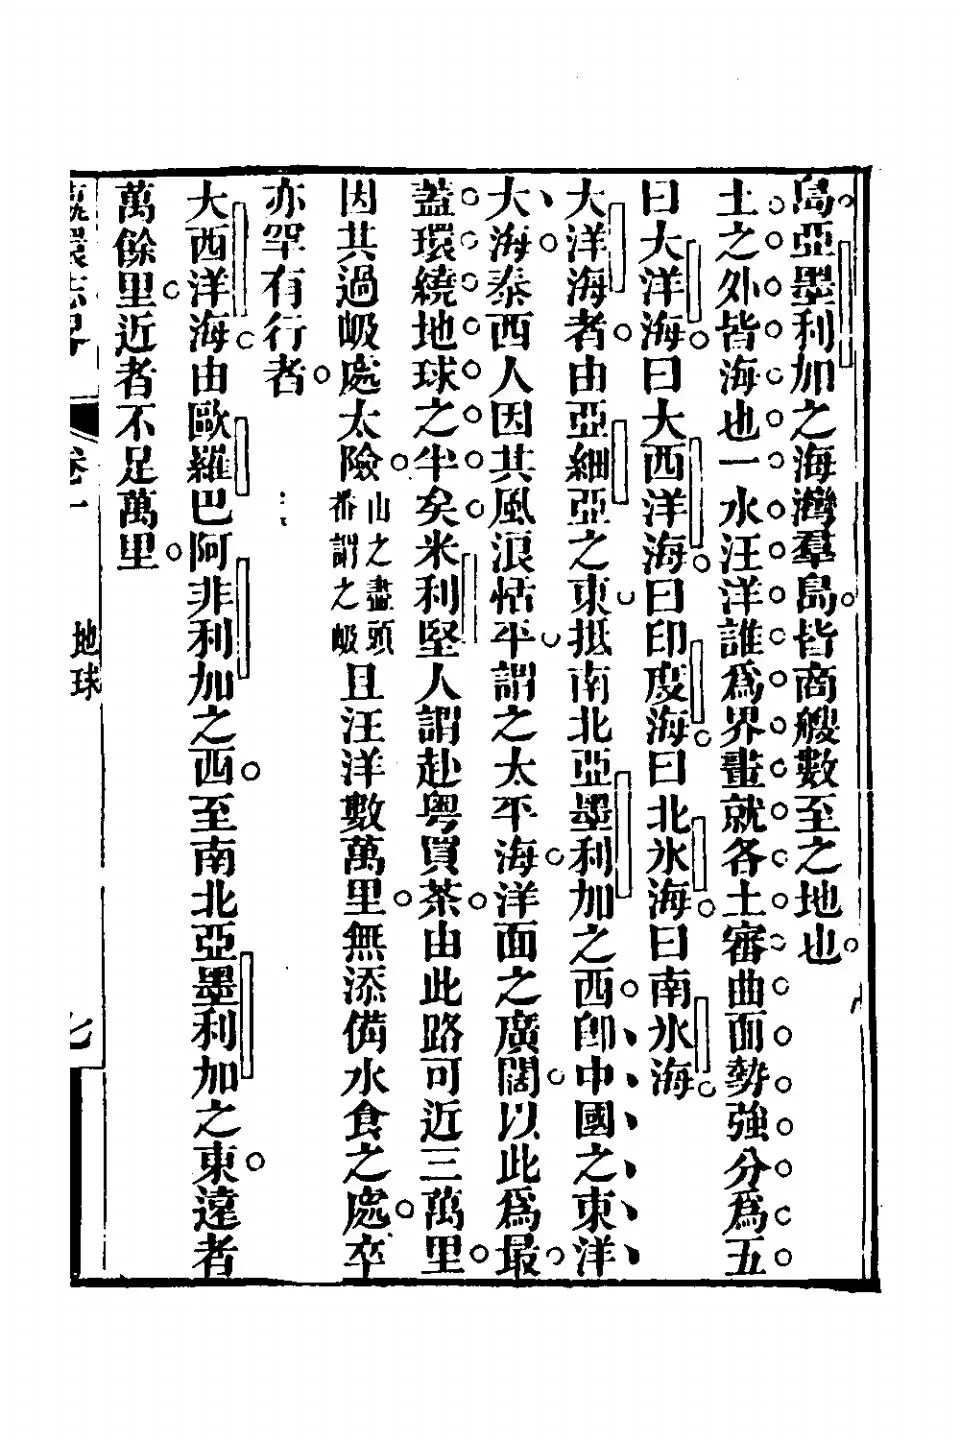 島亞墨利加之海灣羣島皆商艘數至之地也
土之外皆海也一水汪洋誰爲界畫就各土審曲面勢強分爲五
曰大洋海曰大西洋海曰印度海曰北氷海曰南氷海
大洋海者由亞細亞之東抵南北亞墨利加之西卽中國之東洋
大海泰西人因其風浪恬平謂之太平海洋面之廣闊以此爲最
蓋環繞地球之半矣米利堅人謂赴粤買茶由此路可近三萬里
因其過峽處太險山之盡頭番謂之峽且汪洋數萬里無添備水食之處卒
亦罕有行者
大西洋海由歐羅巴阿非利加之西至南北亞墨利加之東遠者
萬餘里近者不足萬里
瀛環志畧 卷一 地球 七